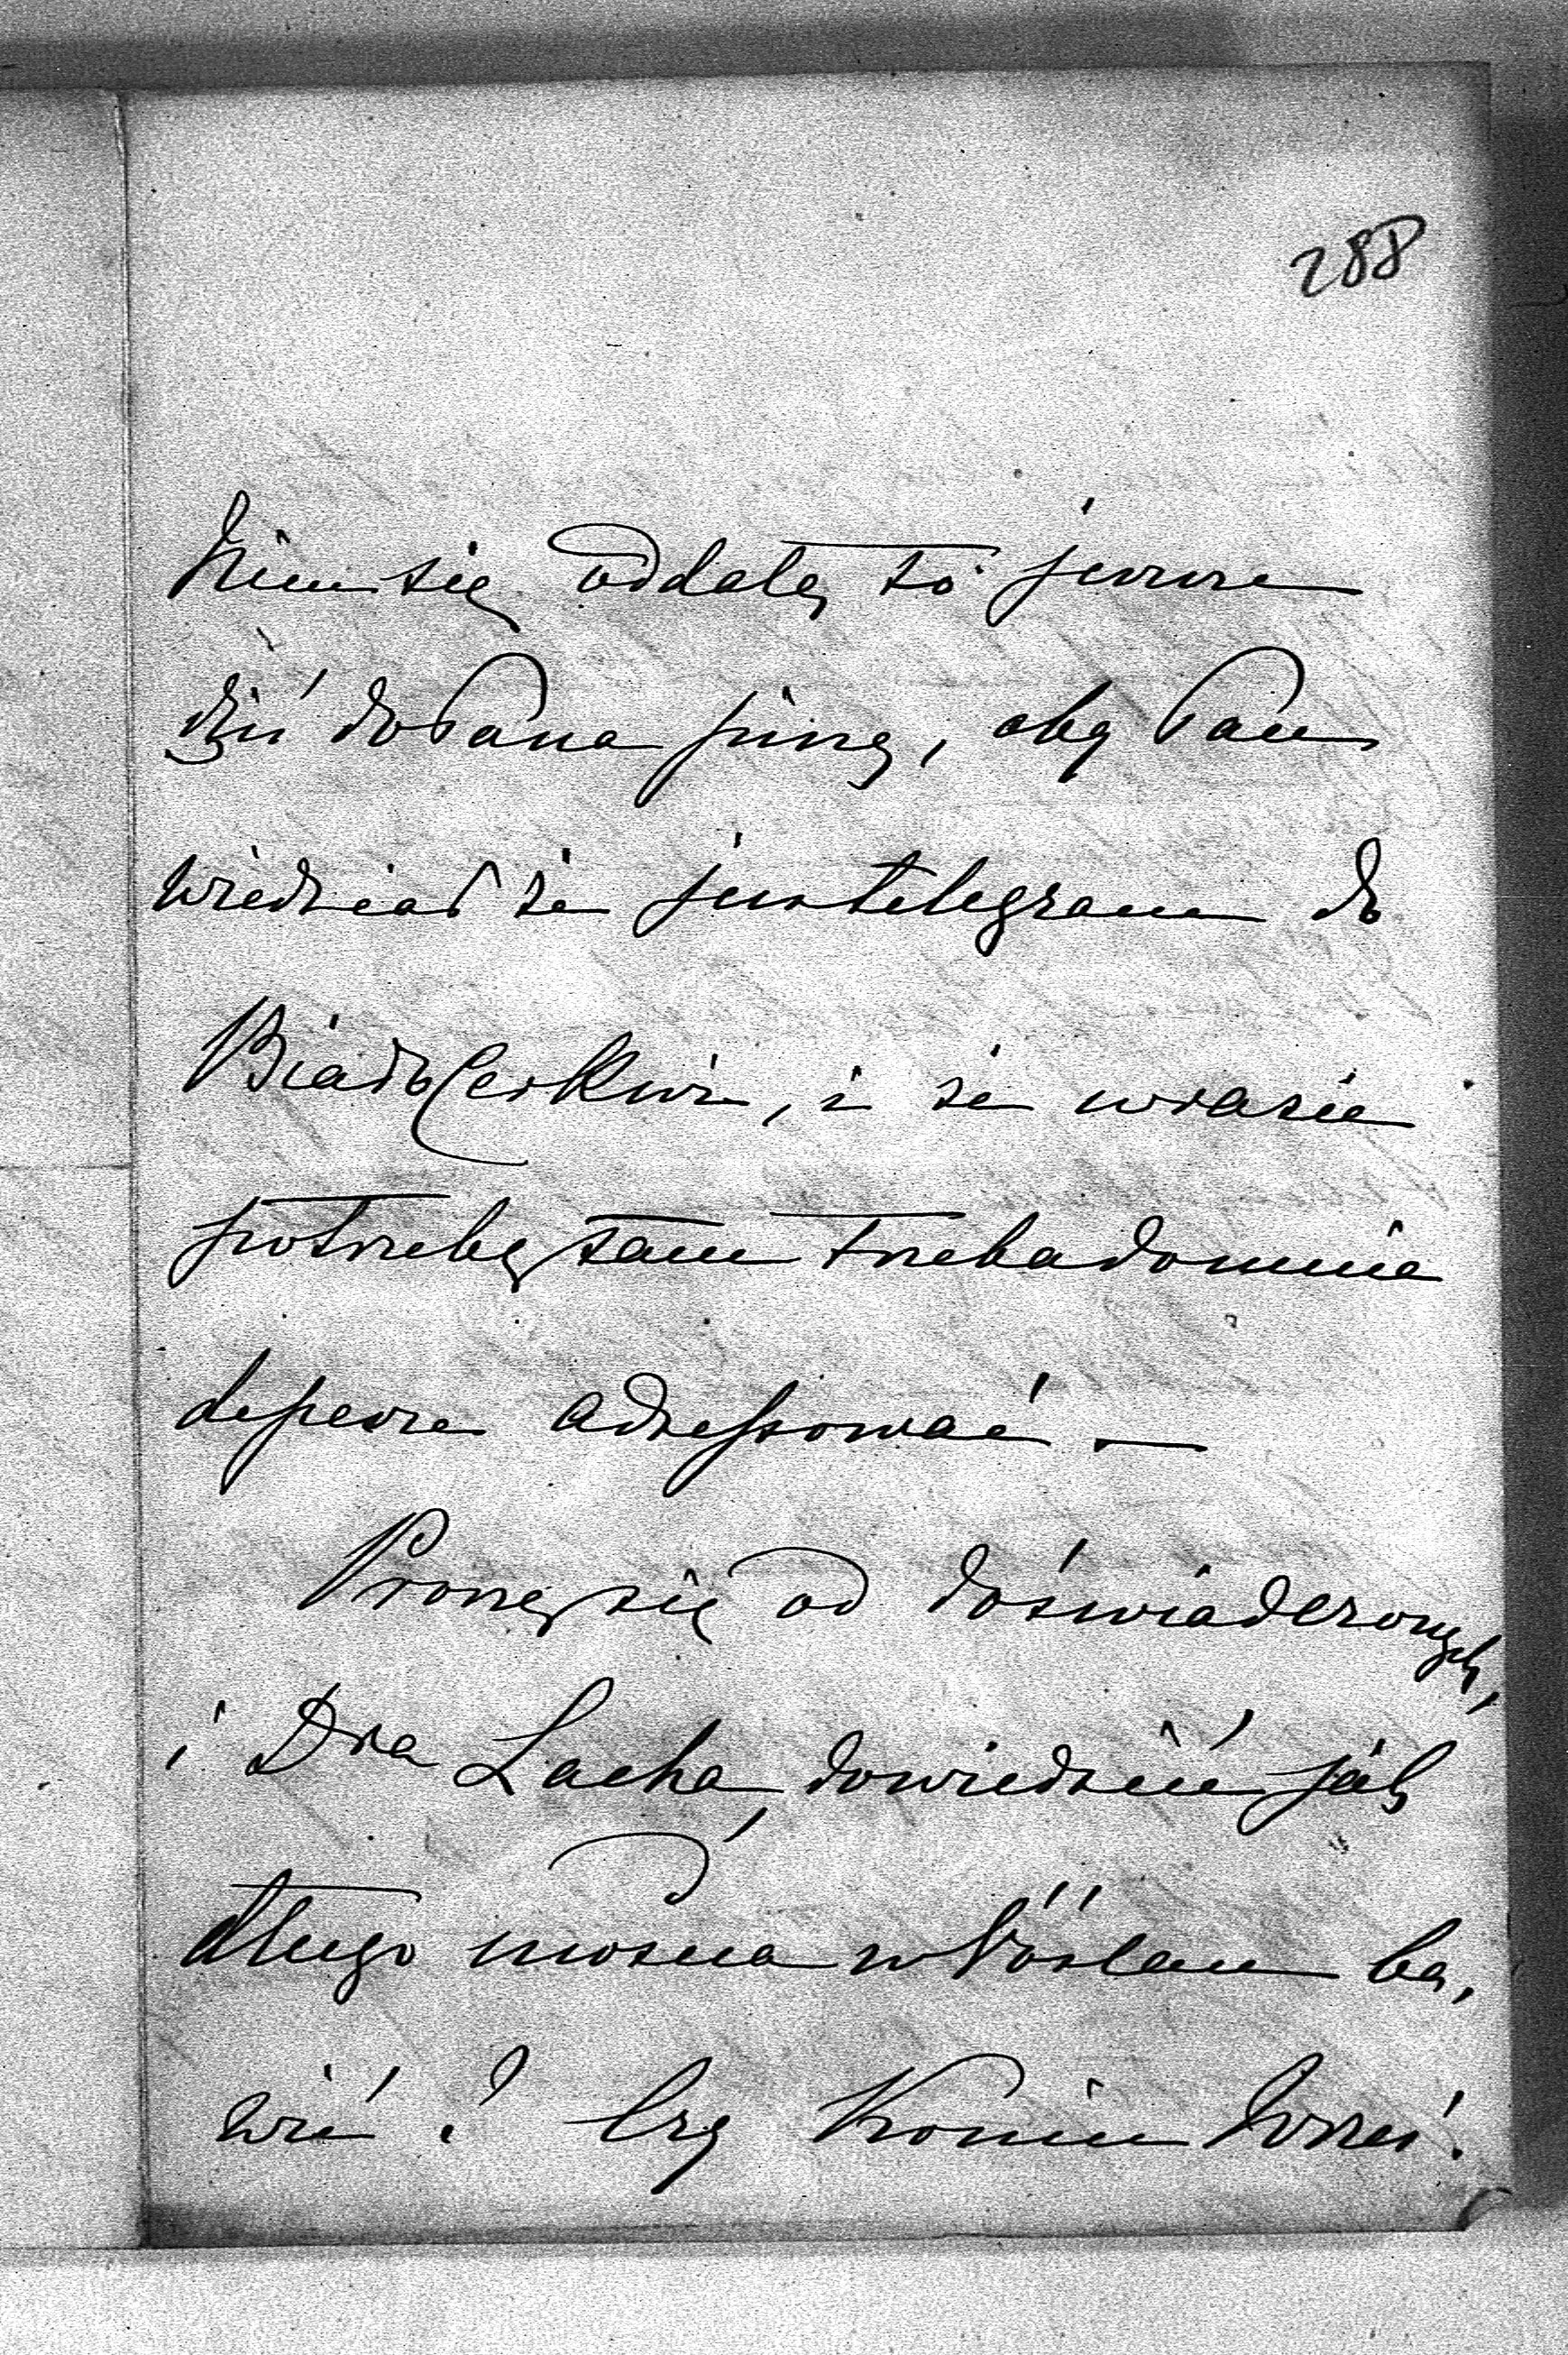 288
Nim się oddalę to jeszcze
dziś do Pana piszę, aby Pan
wiedział że jest telegram do
Białocerkwi, i że w razie
potrzeby tam trzeba do mnie
depesze adressować —
Proszę się od doświadczonych,
i Dra Lacha, dowiedzieć jak
długo można w Vöslau ba,
wić? Czy koniec Wrześ: